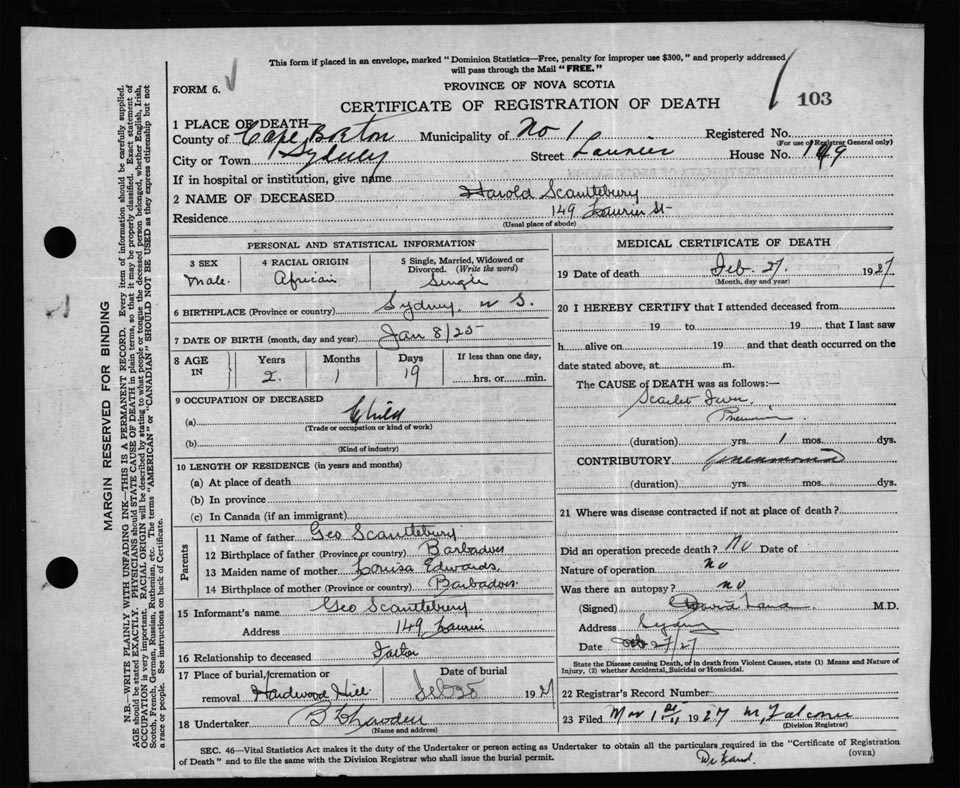 This form if placed in an envelope, marked "Dominion Statistics—Free, penalty for improper use $300," and properly addressed
will pass through the Mail "FREE."
FORM 6.
PROVINCE OF NOVA SCOTIA
CERTIFICATE OF REGISTRATION OF DEATH
103
1 PLACE OF DEATH
County of Cape Breton Municipality of No 1 Registered No.
(For use of Registrar General only)
City or Town Sydney Street Laurier House No. 149
If in hospital or institution, give name
2 NAME OF DECEASED Harold Scantlebury
Residence 149 Laurier St
(Usual place of abode)
PERSONAL AND STATISTICAL INFORMATION
3 SEX 4 RACIAL ORIGIN 5 Single, Married, Widowed or
Divorced. (Write the word)
Male. African Single
6 BIRTHPLACE (Province or country) Sydney, N S.
7 DATE OF BIRTH (month, day and year) Jan 8/25
8 AGE IN Years Months Days If less than one day,
2 1 19 hrs. or min.
9 OCCUPATION OF DECEASED
(a) Child
(Trade or occupation or kind of work)
(b)
(Kind of industry)
10 LENGTH OF RESIDENCE (in years and months)
(a) At place of death
(b) In province
(c) In Canada (if an immigrant)
Parents
11 Name of father Geo Scantlebury
12 Birthplace of father (Province or country) Barbadoes
13 Maiden name of mother Louisa Edwards
14 Birthplace of mother (Province or country) Barbadoes
15 Informant's name Geo Scantlebury
Address 149 Laurier
16 Relationship to deceased Father
17 Place of burial, cremation or Date of burial
removal Hardwood Hill Feb 28 1927
18 Undertaker
(Name and address)
MEDICAL CERTIFICATE OF DEATH
19 Date of death Feb. 27. 1927
(Month, day and year)
20 I HEREBY CERTIFY that I attended deceased from
19 to 19 that I last saw
h alive on 19 and that death occurred on the
date stated above, at m.
The CAUSE of DEATH was as follows:—
Scarlet Fever
(duration) yrs. 1 mos. dys.
CONTRIBUTORY Pneumonia
(duration) yrs. mos. dys.
21 Where was disease contracted if not at place of death?
Did an operation precede death? No Date of
Nature of operation No
Was there an autopsy? No
(Signed) David M.D.
Address Sydney
Date Feb 27/27
State the Disease causing Death, or in death from Violent Causes, state (1) Means and Nature of
Injury, (2) whether Accidental, Suicidal or Homicidal.
22 Registrar's Record Number
23 Filed Mar 1st, 1927 M, Falconer
(Division Registrar)
SEC. 46—Vital Statistics Act makes it the duty of the Undertaker or person acting as Undertaker to obtain all the particulars required in the "Certificate of Registration
of Death" and to file the same with the Division Registrar who shall issue the burial permit.
(OVER)
MARGIN RESERVED FOR BINDING
N.B.—WRITE PLAINLY WITH UNFADING INK—THIS IS A PERMANENT RECORD. Every item of information should be carefully supplied.
AGE should be stated EXACTLY. PHYSICIANS should STATE CAUSE OF DEATH in plain terms, so that it may be properly classified. Exact statement of
OCCUPATION is very important. RACIAL ORIGIN will be described by stating to what people or tongue the deceased person belonged, whether English, Irish,
Scotch, French, German, Russian, Ruthenian, etc. The terms "AMERICAN" or "CANADIAN" SHOULD NOT BE USED as they express citizenship but not
a race or people. See instructions on back of Certificate.